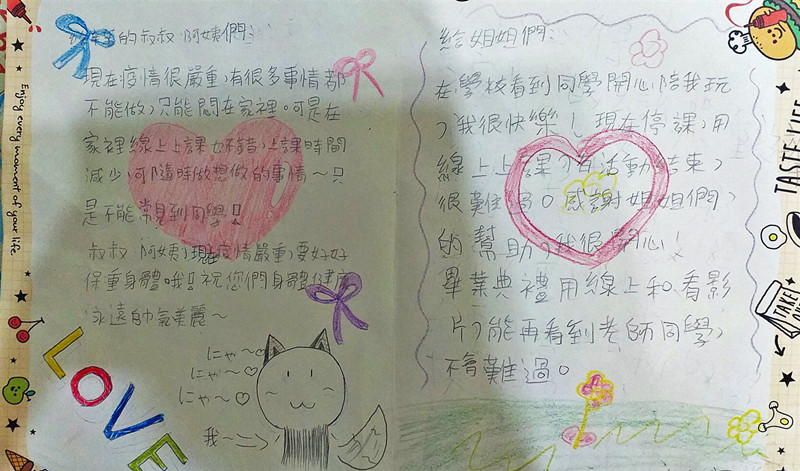 的叔叔阿姨們:
現在疫情很嚴重,有很多事情都
不能做,只能悶在家裡。可是在
家裡線上上課也不錯,上課時間
減少,可隨時做想做的事情~只
是不能常見到同學!!
叔叔阿姨,現在疫情嚴重,要好好
保重身體哦!!祝您們身體健康
永遠帥氣美麗~
にゃ~♡
にゃ~♡
にゃ~♡
我~
LOVE
給姐姐們:
在學校看到同學開心陪我玩
,我很快樂!現在停課,用
線上上課,活動結束,
很難過。感謝姐姐們,
的幫助,我很開心!
畢業典禮用線上和看影
片,能再看到老師同學,
不會難過。
Enjoy every moment of your life
TASTE LIFE
TAKE